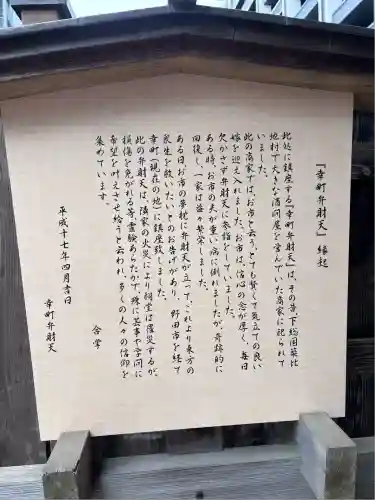 『幸町弁財天』縁起
此処に鎮座する『幸町弁財天』は、その昔下総国葛比
地村で大きな酒問屋を営んでいた商家に祀られて
いました。
此の商家では、お市と云う、とても賢くて気立ての良い
嫁を迎え入れました。お市は、信心の念が厚く、毎日
欠かさず弁財天に参詣していました。
ある時、お市の夫が重い病に倒れましたが、奇跡的に
回復し、一家は益々繁栄しました。
ある日、お市の夢枕に弁財天が立って、これより東方の
衆生を救いたいとのお告げがあり、野田市を経て
幸町(現在の地)に鎮座致しました。
此の弁財天は、隣家の火災により祠堂は罹災するが、
損傷を免がれる等、霊験あらたかで、殊に芸事や学問に
希望を叶えさせ給うと云われ、多くの人々の信仰を
集めています。
合掌
平成十七年四月吉日
幸町弁財天